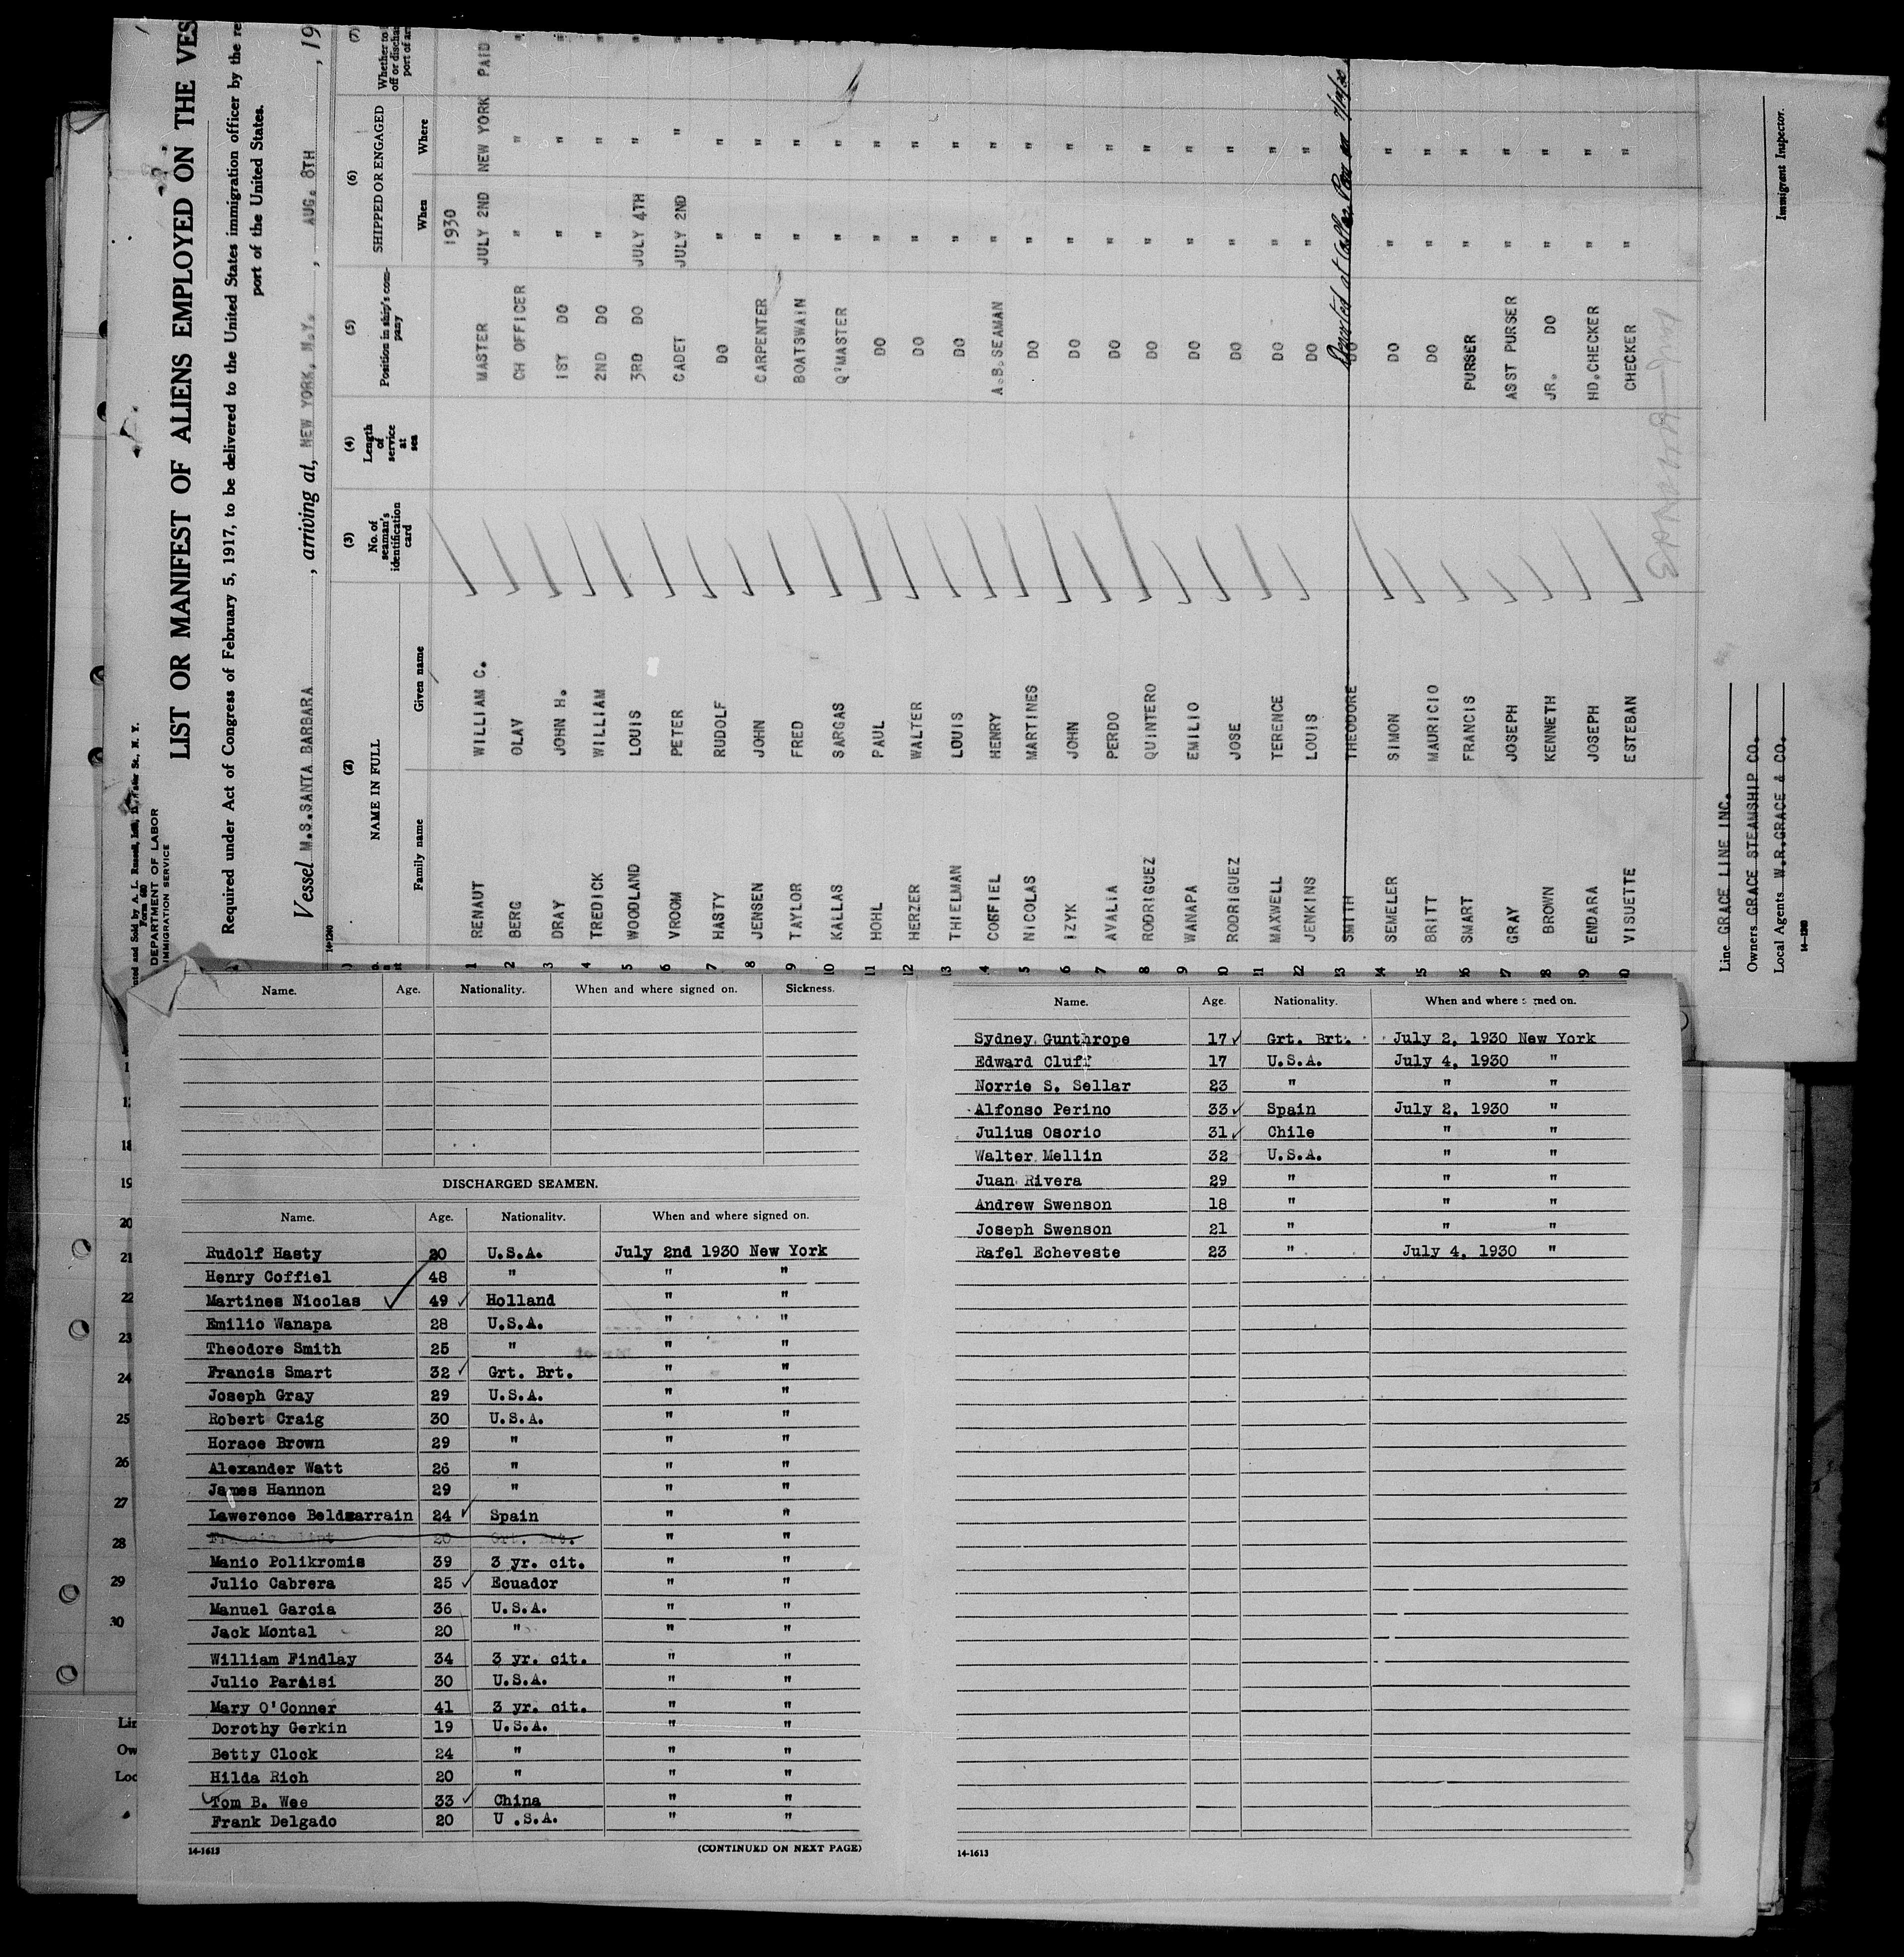 LIST OR MANIFEST OF ALIENS EMPLOYED ON THE VES
Required under Act of Congress of February 5, 1917, to be delivered to the United States immigration officer by the re
port of the United States.
Form 680
DEPARTMENT OF LABOR
IMMIGRATION SERVICE
Vessel M.S.SANTA BARBARA, arriving at, NEW YORK, N.Y., AUG. 8TH, 19
14-1240
(2) (3) (4) (5) (6) (7)
NAME IN FULL No. of seaman's identification card Length of service at sea Position in ship's company SHIPPED OR ENGAGED Whether to
off or dischar
port of arr
Family name Given name When Where
1930
1 RENAUT WILLIAM C. MASTER JULY 2ND NEW YORK PAID
2 BERG OLAV CH OFFICER " " "
3 DRAY JOHN H. 1ST DO " " "
4 TREDICK WILLIAM 2ND DO " " "
5 WOODLAND LOUIS 3RD DO JULY 4TH " "
6 VROOM PETER CADET JULY 2ND " "
7 HASTY RUDOLF DO " " "
8 JENSEN JOHN CARPENTER " " "
9 TAYLOR FRED BOATSWAIN " " "
10 KALLAS SARGAS Q'MASTER " " "
11 HOHL PAUL DO " " "
12 HERZER WALTER DO " " "
13 THIELMAN LOUIS DO " " "
4 COFFIEL HENRY A.B.SEAMAN " " "
5 NICOLAS MARTINES DO " " "
6 IZYK JOHN DO " " "
7 AVALIA PERDO DO " " "
8 RODRIGUEZ QUINTERO DO " " "
9 WANAPA EMILIO DO " " "
0 RODRIGUEZ JOSE DO " " "
11 MAXWELL TERENCE DO " "
22 JENKINS LOUIS DO " "
3 SMITH THEODORE DO Deserted at Callao, Peru on
14 SEMELER SIMON DO " "
5 BRITT MAURICIO DO " "
6 SMART FRANCIS PURSER " "
7 GRAY JOSEPH ASST PURSER " "
8 BROWN KENNETH JR. DO " "
9 ENDARA JOSEPH HD.CHECKER " "
0 VISUETTE ESTEBAN CHECKER " "
Line GRACE LINE INC.
Owners GRACE STEAMSHIP CO.
Local Agents W.R.GRACE & CO.
14-1240
Immigrant Inspector.
18
19
20
21
22
23
24
25
26
27
28
29
30
Lin
Ow
Loc
Name. Age. Nationality. When and where signed on. Sickness.
DISCHARGED SEAMEN.
Name. Age. Nationality. When and where signed on.
Rudolf Hasty 20 U.S.A. July 2nd 1930 New York
Henry Coffiel 48 " " "
Martines Nicolas 49 Holland " "
Emilio Wanapa 28 U.S.A. " "
Theodore Smith 25 " " "
Francis Smart 32 Grt. Brt. " "
Joseph Gray 29 U.S.A. " "
Robert Craig 30 U.S.A. " "
Horace Brown 29 " " "
Alexander Watt 26 " " "
James Hannon 29 " " "
Lawerence Beldzarrain 24 Spain " "
20 Grt. Brt. " "
Manio Polikromis 39 3 yr. cit. " "
Julio Cabrera 25 Ecuador " "
Manuel Garcia 36 U.S.A. " "
Jack Montal 20 " " "
William Findlay 34 3 yr. cit. " "
Julio Paraisi 30 U.S.A. " "
Mary O'Conner 41 3 yr. cit. " "
Dorothy Gerkin 19 U.S.A. " "
Betty Clock 24 " " "
Hilda Rich 20 " " "
Tom B. Wee 33 China " "
Frank Delgado 20 U .S.A. " "
14-1613 (CONTINUED ON NEXT PAGE)
Name. Age. Nationality. When and where signed on.
Sydney Gunthrope 17 Grt. Brt. July 2, 1930 New York
Edward Cluff 17 U.S.A. July 4, 1930 "
Norrie S. Sellar 23 " " "
Alfonso Perino 33 Spain July 2, 1930 "
Julius Osorio 31 Chile " "
Walter Mellin 32 U.S.A. " "
Juan Rivera 29 " " "
Andrew Swenson 18 " " "
Joseph Swenson 21 " " "
Rafel Echeveste 23 " July 4, 1930 "
14-1613